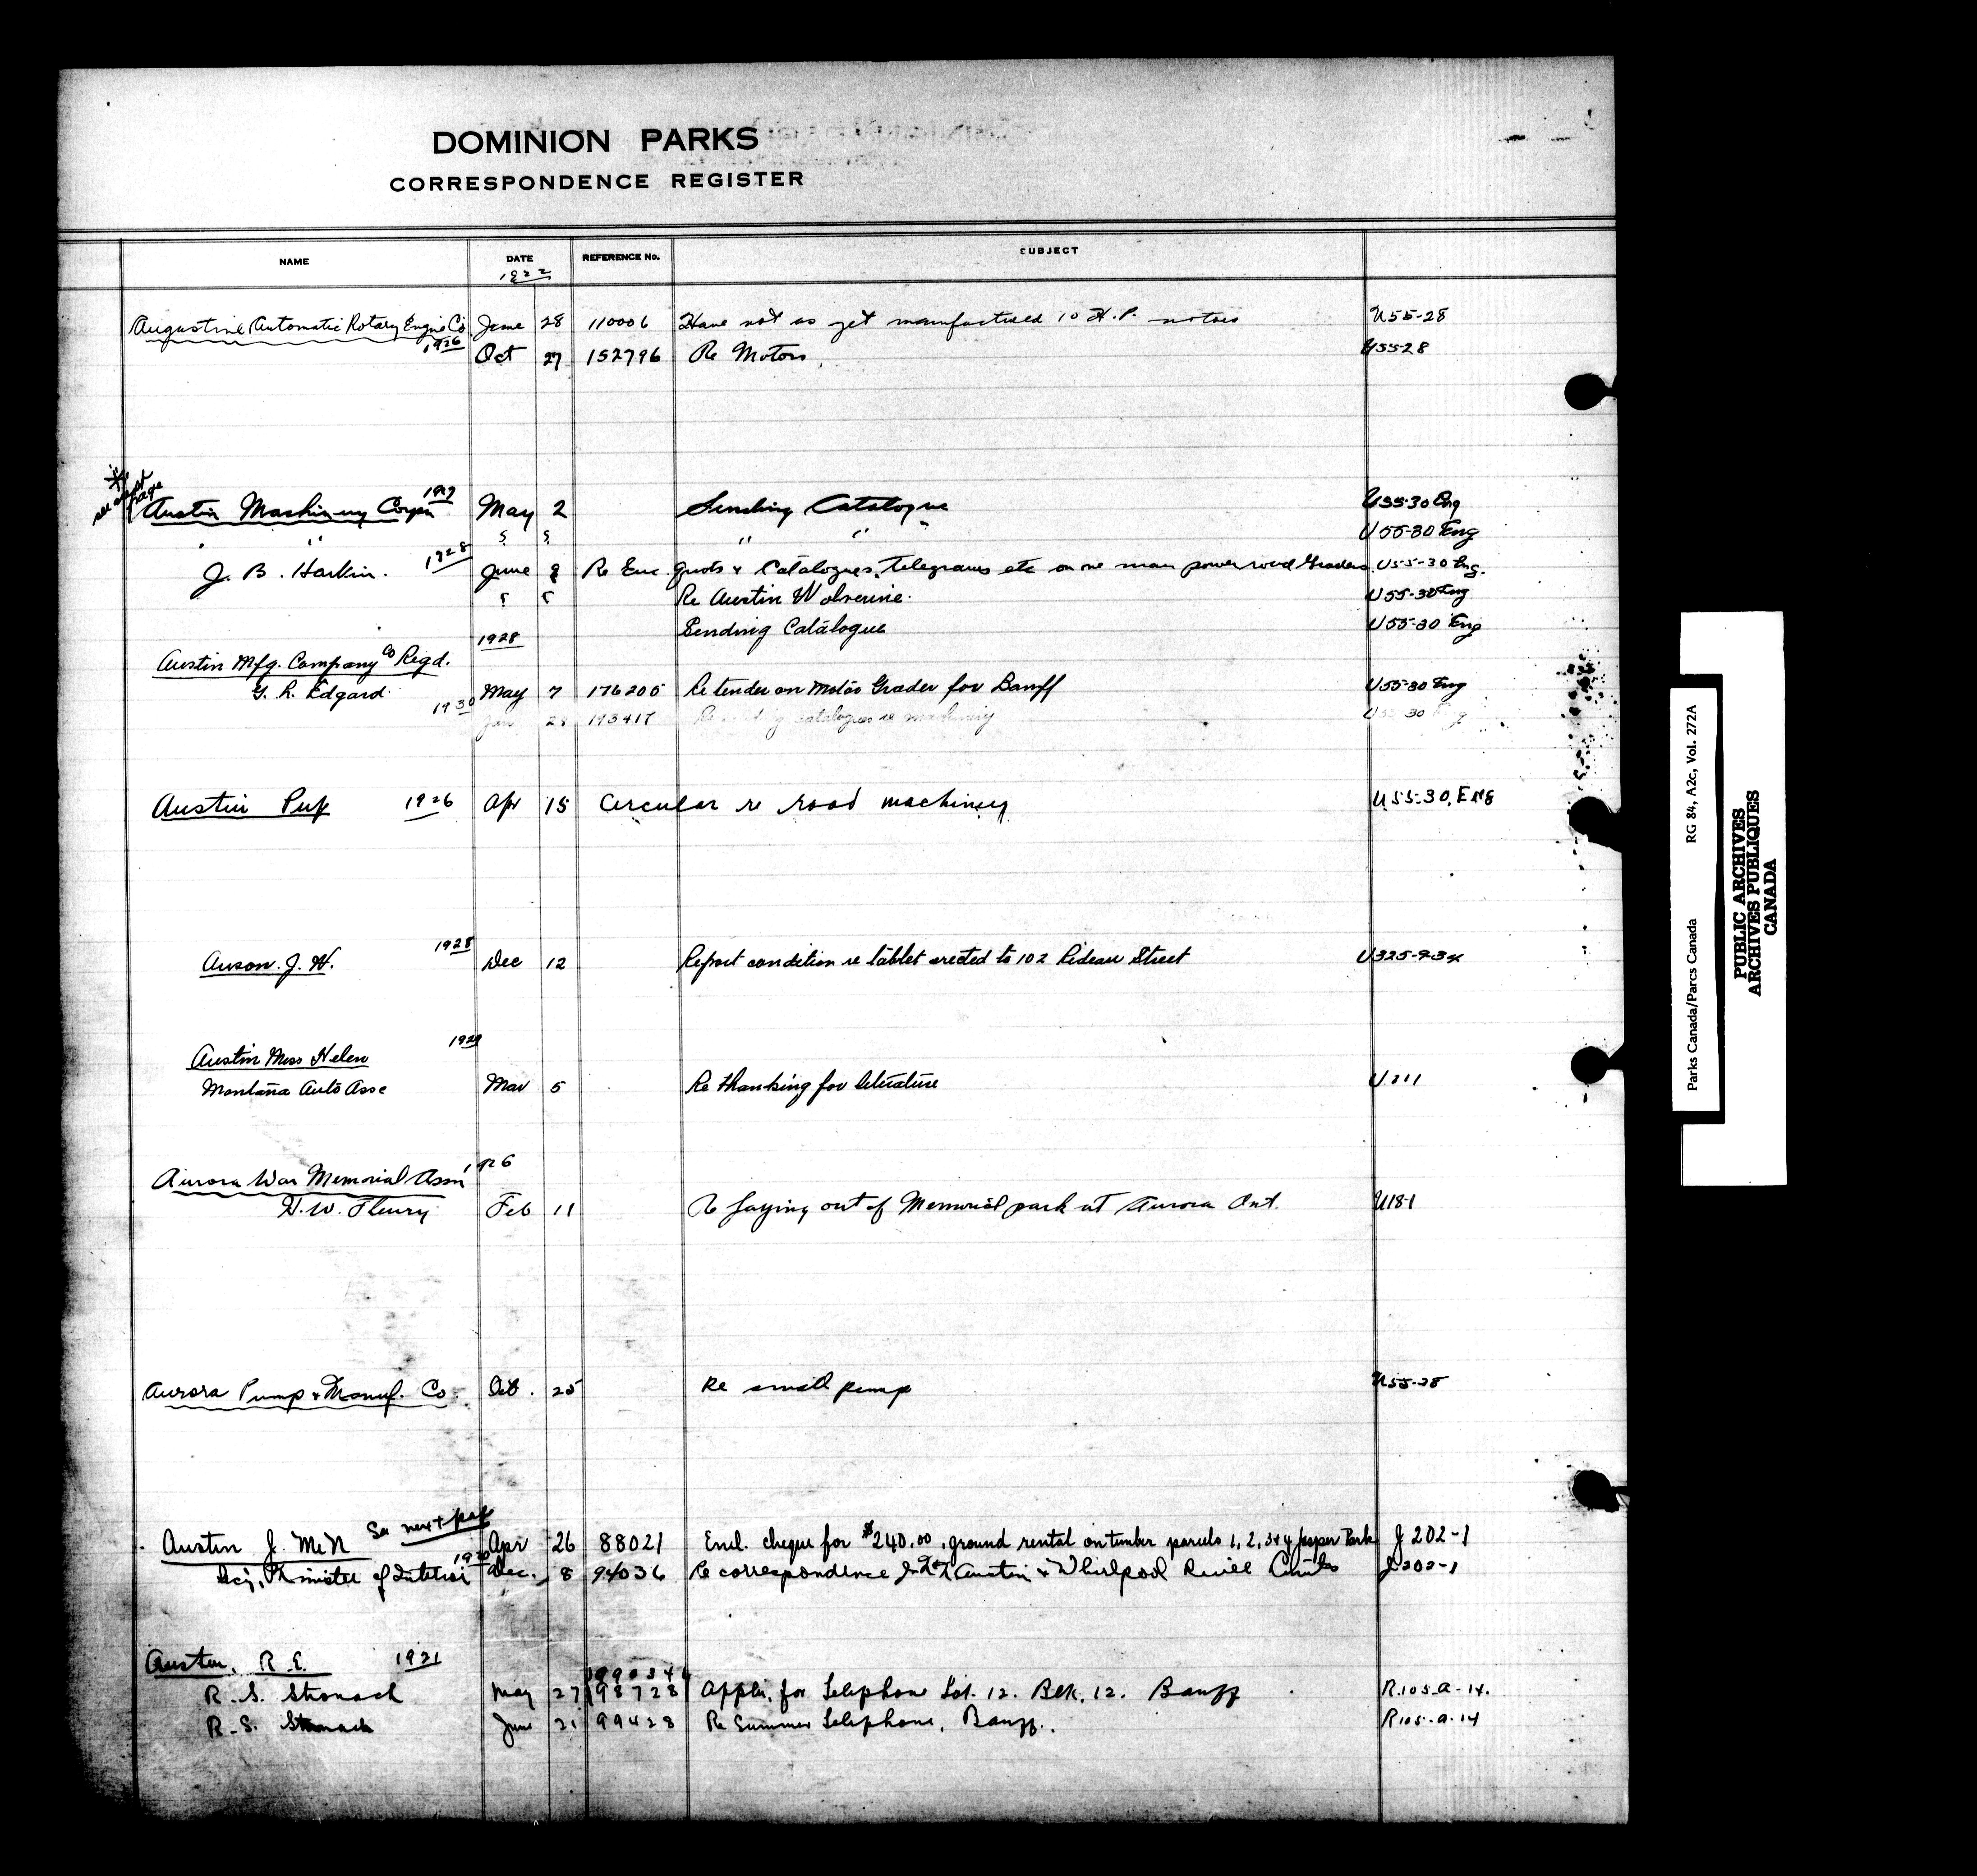 DOMINION PARKS
CORRESPONDENCE REGISTER
NAME DATE REFERENCE No. SUBJECT
1922
Augustine Automatic Rotary Engine Co June 28 110006 Have not as yet manufactured 10 H.P. motors U55-28
1926 Oct 27 152796 Re Motors, U55-28
see next page
Austin Machinery Corpn 1927 May 2 Sending Catalogue U55-30 Eng
" 5 5 " " U55-30 Eng
J. B. Harkin. 1928 June 8 Re Enc. quots & Catalogues, telegrams etc on one man power road Graders U55-30 Eng.
Re Austin Wolverine. U55-30 Eng
1928 Sending Catalogue U55-30 Eng
Austin Mfg. Company Co Regd.
G. R. Edgard. May 7 176205 Re tender on Motor Grader for Banff U55-30 Eng
1930 Jan 28 193417 Re catalogues re machinery U55 30 Eng
Austin Pup 1926 Apr 15 Circular re road machinery U55-30, ENG
Auson. J. H. 1928 Dec 12 Report condition re tablet erected to 102 Rideau Street U325-
Austin Miss Helen 1929
Montana Auto Asse Mar 5 Re thanking for literature U.211
Aurora War Memorial Assn 1926
H. W. Fleury Feb 11 Re laying out of Memorial park at Aurora Ont. U18-1
Aurora Pump & Manuf. Co. Oct. 25 Re small pump U55-28
See next page
Austin J. McN Apr 26 88021 Encl. cheque for $240.00, ground rental on timber parcels 1, 2, 3 & 4 Jasper Park J 202-1
Minister of Interior 1920 Dec. 8 94036 Re correspondence Austin & Whirlpool River Limits J 202-1
Austen, R. E. 1921
199034
R. S. Stronach May 27 98728 Appln. for Telephone Lot. 12. Blk. 12. Banff R.105-a-14.
R. S. Stronach June 21 99428 Re Summer Telephone, Banff. R105-a-14
Parks Canada/Parcs Canada RG 84, A2c, Vol. 272A
PUBLIC ARCHIVES
ARCHIVES PUBLIQUES
CANADA